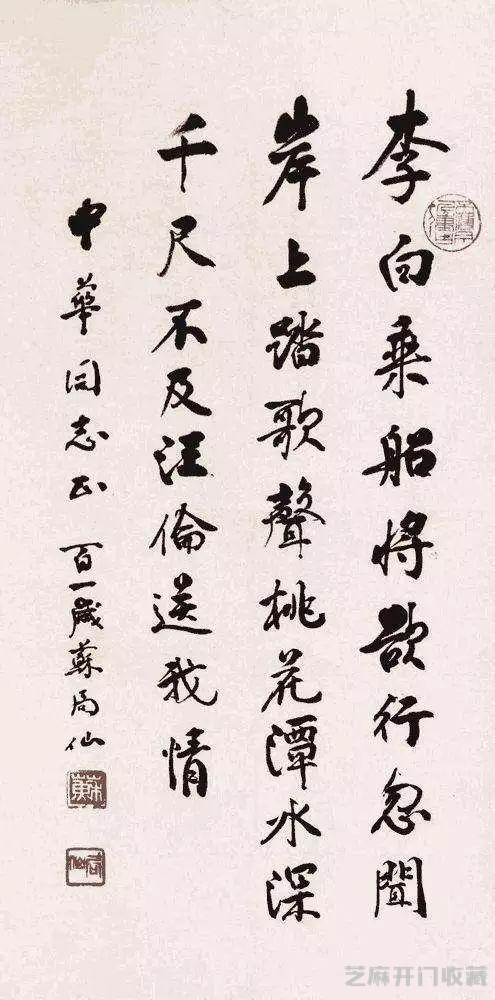 李白乘船將欲行忽聞
岸上踏歌聲桃花潭水深
千尺不及汪倫送我情
中華同志正 百一歲蘇局仙
蘇
局仙
芝麻开门收藏